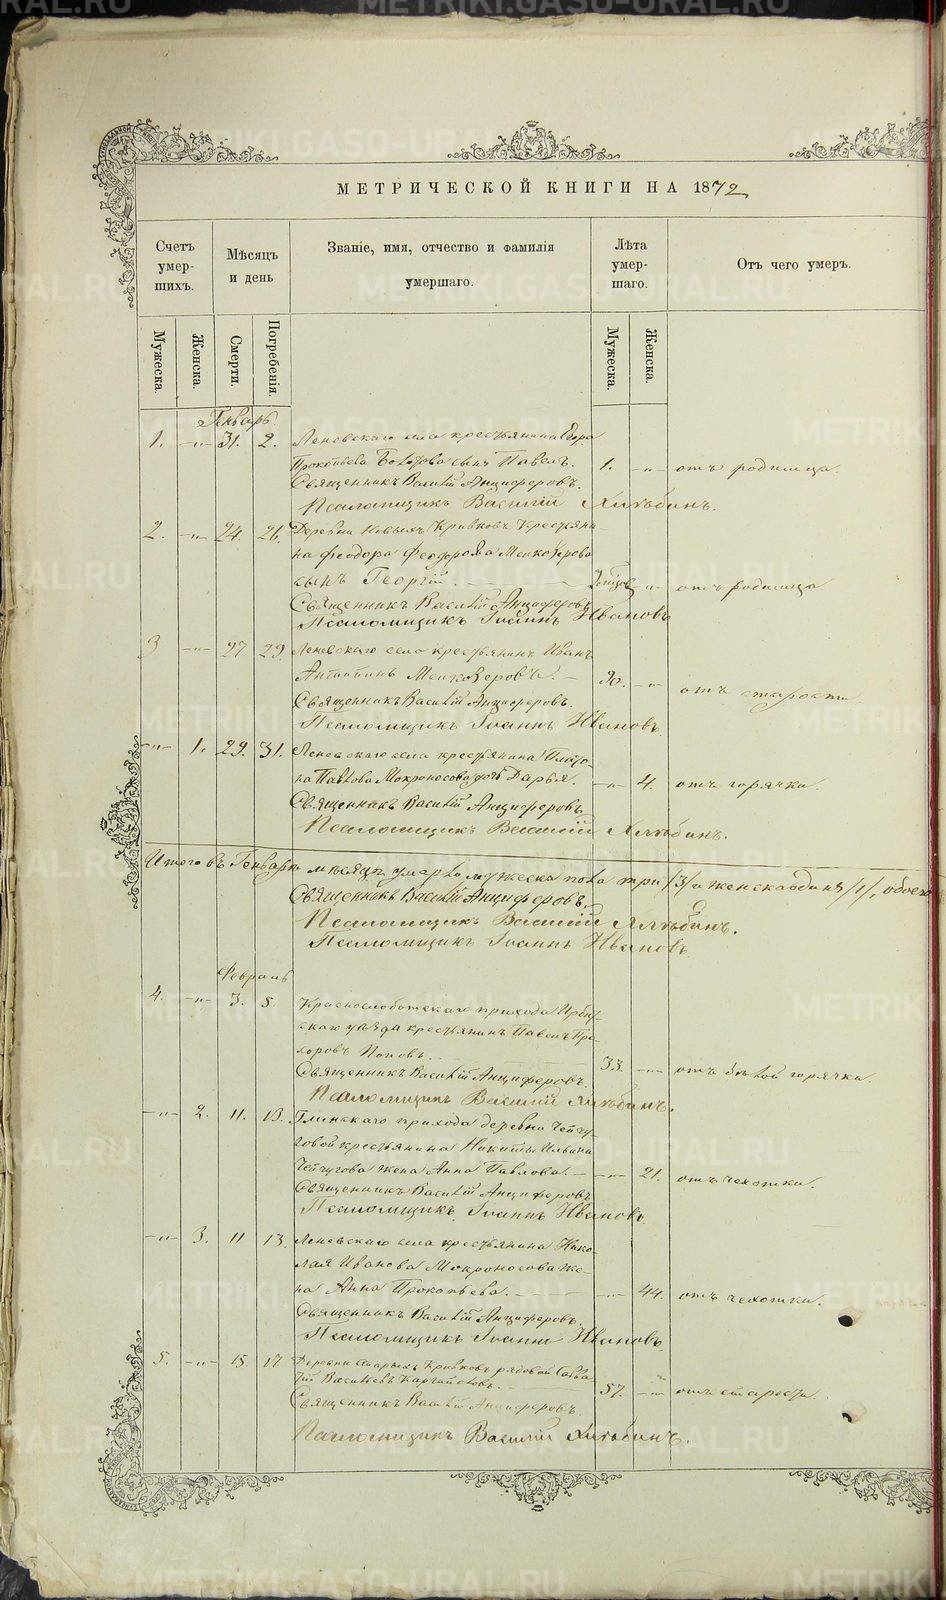 МЕТРИЧЕСКОЙ КНИГИ НА 1872
Счетъ умер-шихъ.
Мѣсяцъ и день
Званіе, имя, отчество и фамилія умершаго.
Лѣта умер-шаго.
Отъ чего умеръ.
Мужеска.
Женска.
Смерти.
Погребенія.
Мужеска.
Женска.
Генварь.
1. -"- 31. 2. Леневскаго села крестьянина
Прокопьева сынъ Павелъ. 1. -"- отъ родимца.
Священникъ Василій Анциферовъ.
Псаломщикъ Василій Хлѣбинъ.
2. -"- 24. 26. Деревни Новыхъ Кривковъ Крестьяни-
на Феодора Феодорова Мелкозерова
сынъ Георгій. -"- отъ родимца
Священникъ Василій Анциферовъ
Псаломщикъ Іоаннъ Ивановъ
3 -"- 27 29. Леневскаго села крестьянинъ Иванъ
Антипинъ Мелкозеровъ. 70. -"- отъ старости
Священникъ Василій Анциферовъ.
Псаломщикъ Іоаннъ Ивановъ.
-"- 1. 29. 31. Леневскаго села крестьянина Плато-
на Павлова Мокроносова дочь Дарья. -"- 4. отъ горячки.
Священникъ Василій Анциферовъ.
Псаломщикъ Василій Хлѣбинъ.
Итого въ Генварѣ мѣсяцѣ умерло мужеска пола три /3/ и женска одна /1/, обоего
Священникъ Василій Анциферовъ.
Псаломщикъ Василій Хлѣбинъ.
Псаломщикъ Іоаннъ Ивановъ
Февраль
4. -"- 3. 5. Краснослободскаго прихода Ирбит-
скаго уѣзда крестьянинъ Павелъ Про-
хоровъ Поповъ. 33. -"- отъ бѣлой горячки.
Священникъ Василій Анциферовъ.
Псаломщикъ Василій Хлѣбинъ.
-"- 2. 11. 13. Глинскаго прихода деревни Чепчу-
говой крестьянина Никиты Ильина
Чепчугова жена Анна Павлова. -"- 21. отъ чехотки.
Священникъ Василій Анциферовъ
Псаломщикъ Іоаннъ Ивановъ
-"- 3. 11 13. Леневскаго села крестьянина Нико-
лая Иванова Мокроносова же-
на Анна Прокопьева. -"- 44. отъ чехотки.
Священникъ Василій Анциферовъ.
Псаломщикъ Іоаннъ Ивановъ.
5. -"- 15. 17. Деревни Старыхъ Кривковъ рядовой
Василіевъ 57. -"- отъ старости
Священникъ Василій Анциферовъ.
Псаломщикъ Василій Хлѣбинъ.
METRIKI.GASO-URAL.RU